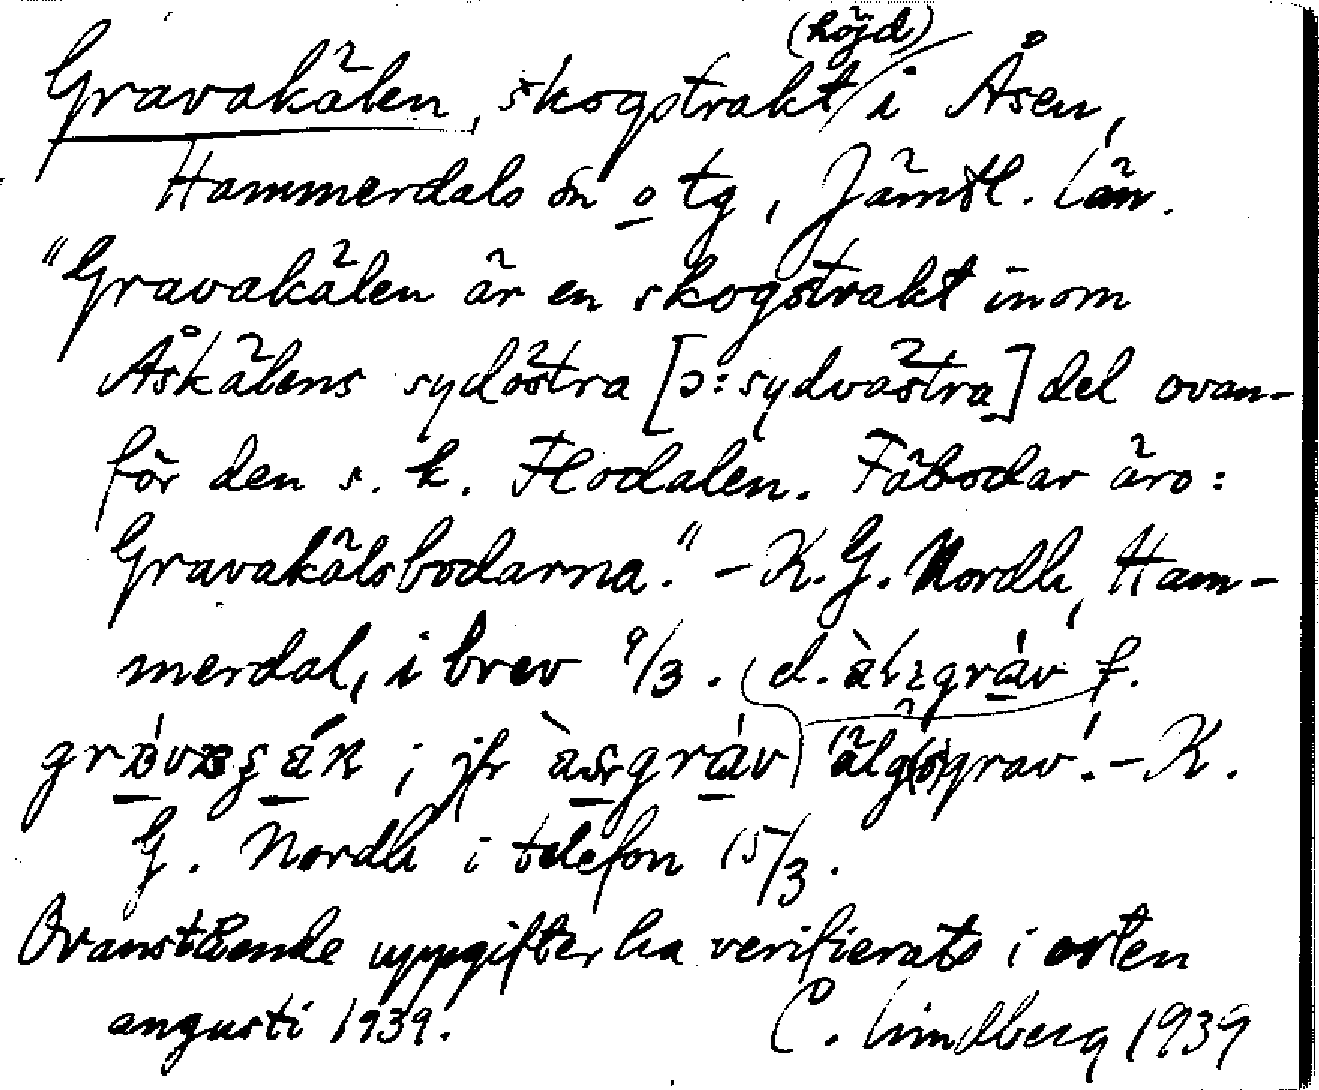 (höjd)
Gravakälen, skogstrakt i Åsen,
Hammerdals sn o tg, Jämtl. län.
"Gravakälen är en skogstrakt inom
Åskälens sydöstra [ɔ: sydvästra] del ovan-
för den s. k. Flodalen. Fäbodar äro:
Gravakälsbodarna." – K. G. Nordh, Ham-
merdal, i brev 9/3. d. f.
; jfr 'älg(s)grav'. – K.
G. Nordh i telefon 15/3.
Ovanstående uppgifter ha verifierats i orten
augusti 1939. C. Lindberg 1939